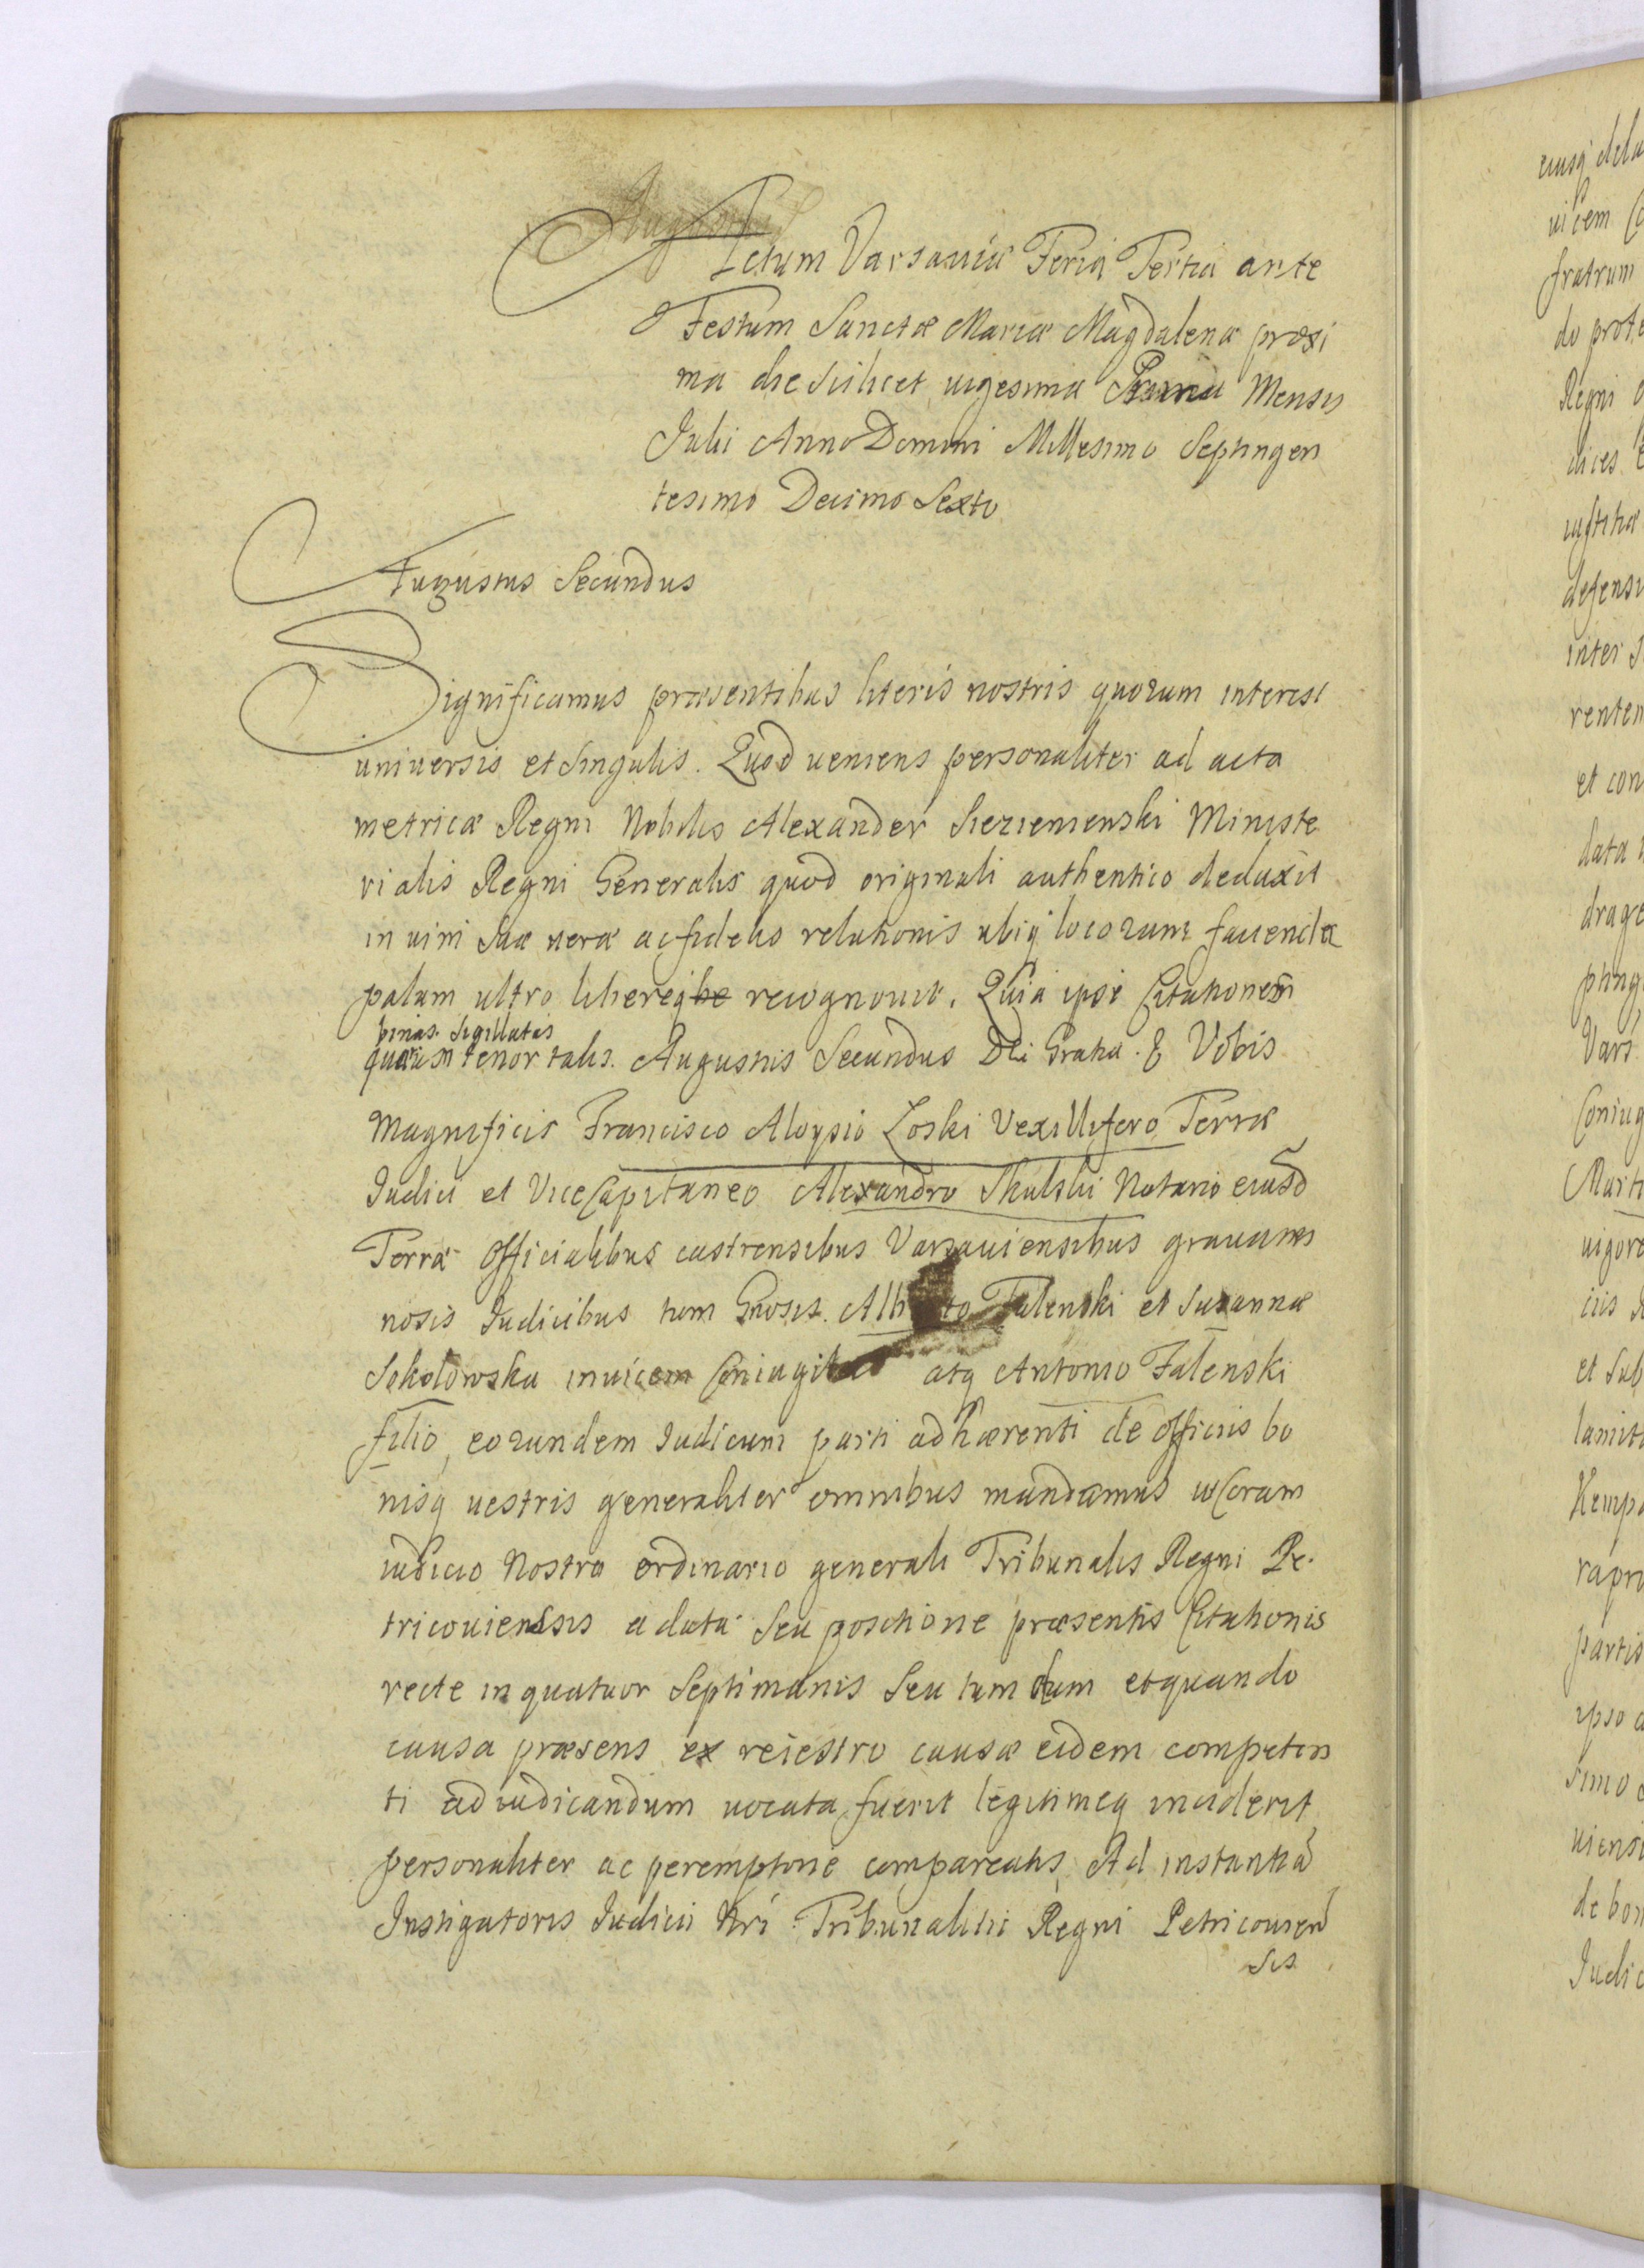 Actum Varsaviæ Feria Tertia ante
Festum Sanctæ Mariæ Magdalenæ proxi
ma die Scilicet vigesima Mensis
Julii Anno Domini Millesimo Septingen
tesimo Decimo Sexto
Augustus Secundus
Significamus præsentibus literis nostris quorum interest
universis et Singulis. Quod veniens personaliter ad acta
metricæ Regni Nobilis Alexander Ministe
rialis Regni Generalis quod originali authentico deduxit
in vim suæ veræ ac fidelis relationis ubiq locorum facienda
palam ultro libereq recognovit. Quia ipse Citationem
binas Sigillatas
quarum tenor talis. Augustus Secundus Dei Gratia. & Vobis
Magnificis Francisco Aloysio Loski Vexillifero Terræ
Iudici et ViceCapitaneo Alexandro Skulski Notario eiusd
Terræ Officialibus castrensibus Varsaviensibus gravami
nosis Iudicibus tum Gnosis. Alberto Falenski et Suzannæ
Sokolowska invicem Coniugibus atq Antonio Falenski
filio, eorundem Iudicum parti adhærenti de officiis bo
nisq vestris generaliter omnibus mandamus ut Coram
iudicio Nostro ordinario generali Tribunalis Regni Pe.
tricoviensis a data seu positione præsentis Citationis
recte in quatuor Septimanis Seu tum dum et quando
causa præsens ex reiestro causæ eidem competen
ti ad iudicandum vocata fuerit legitimeq inciderit
personaliter ac peremptorie compareatis, Ad instantiã
Instigatoris Iudicii Nri Tribunalitii Regni Petricovien
sis
eiusq
vicem
fratrum
do
Regni
dices
iustitiæ
inter
et con
data
Vars
Coniug
Marti
vigore
et Sub
Kemp
partis
ipso
simo
viensi
de bon
Judic